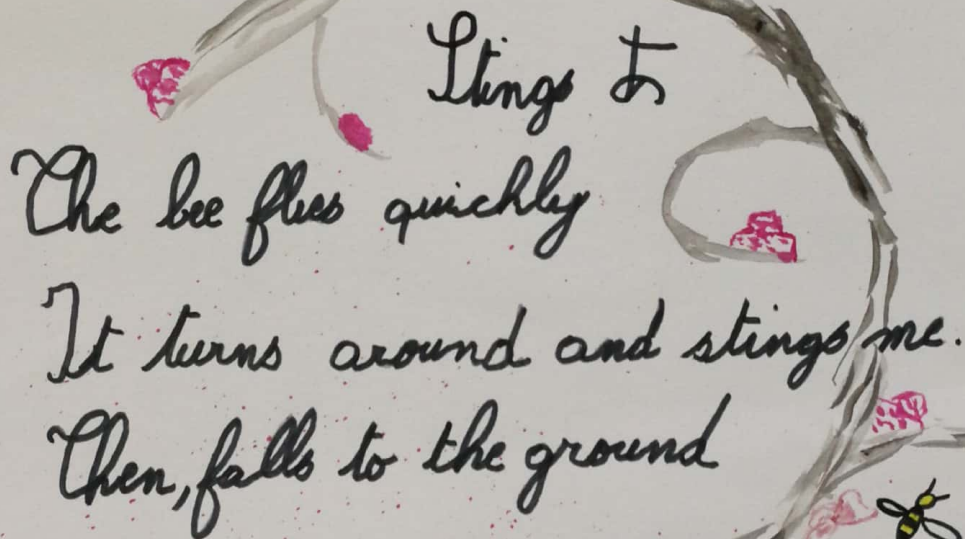 Stings
The bee flies quickly
It turns around and stings me.
Then, falls to the ground